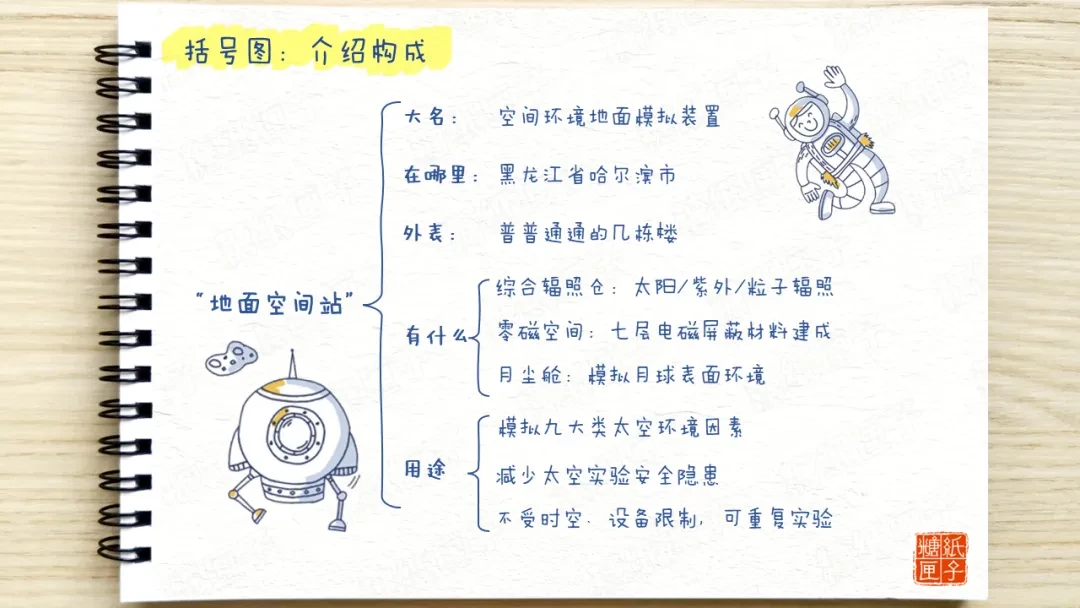 括号图：介绍构成
大名： 空间环境地面模拟装置
在哪里：黑龙江省哈尔滨市
外表： 普普通通的几栋楼
“地面空间站”
有什么
综合辐照仓：太阳/紫外/粒子辐照
零磁空间：七层电磁屏蔽材料建成
月尘舱：模拟月球表面环境
用途
模拟九大类太空环境因素
减少太空实验安全隐患
不受时空、设备限制，可重复实验
糖纸匣子